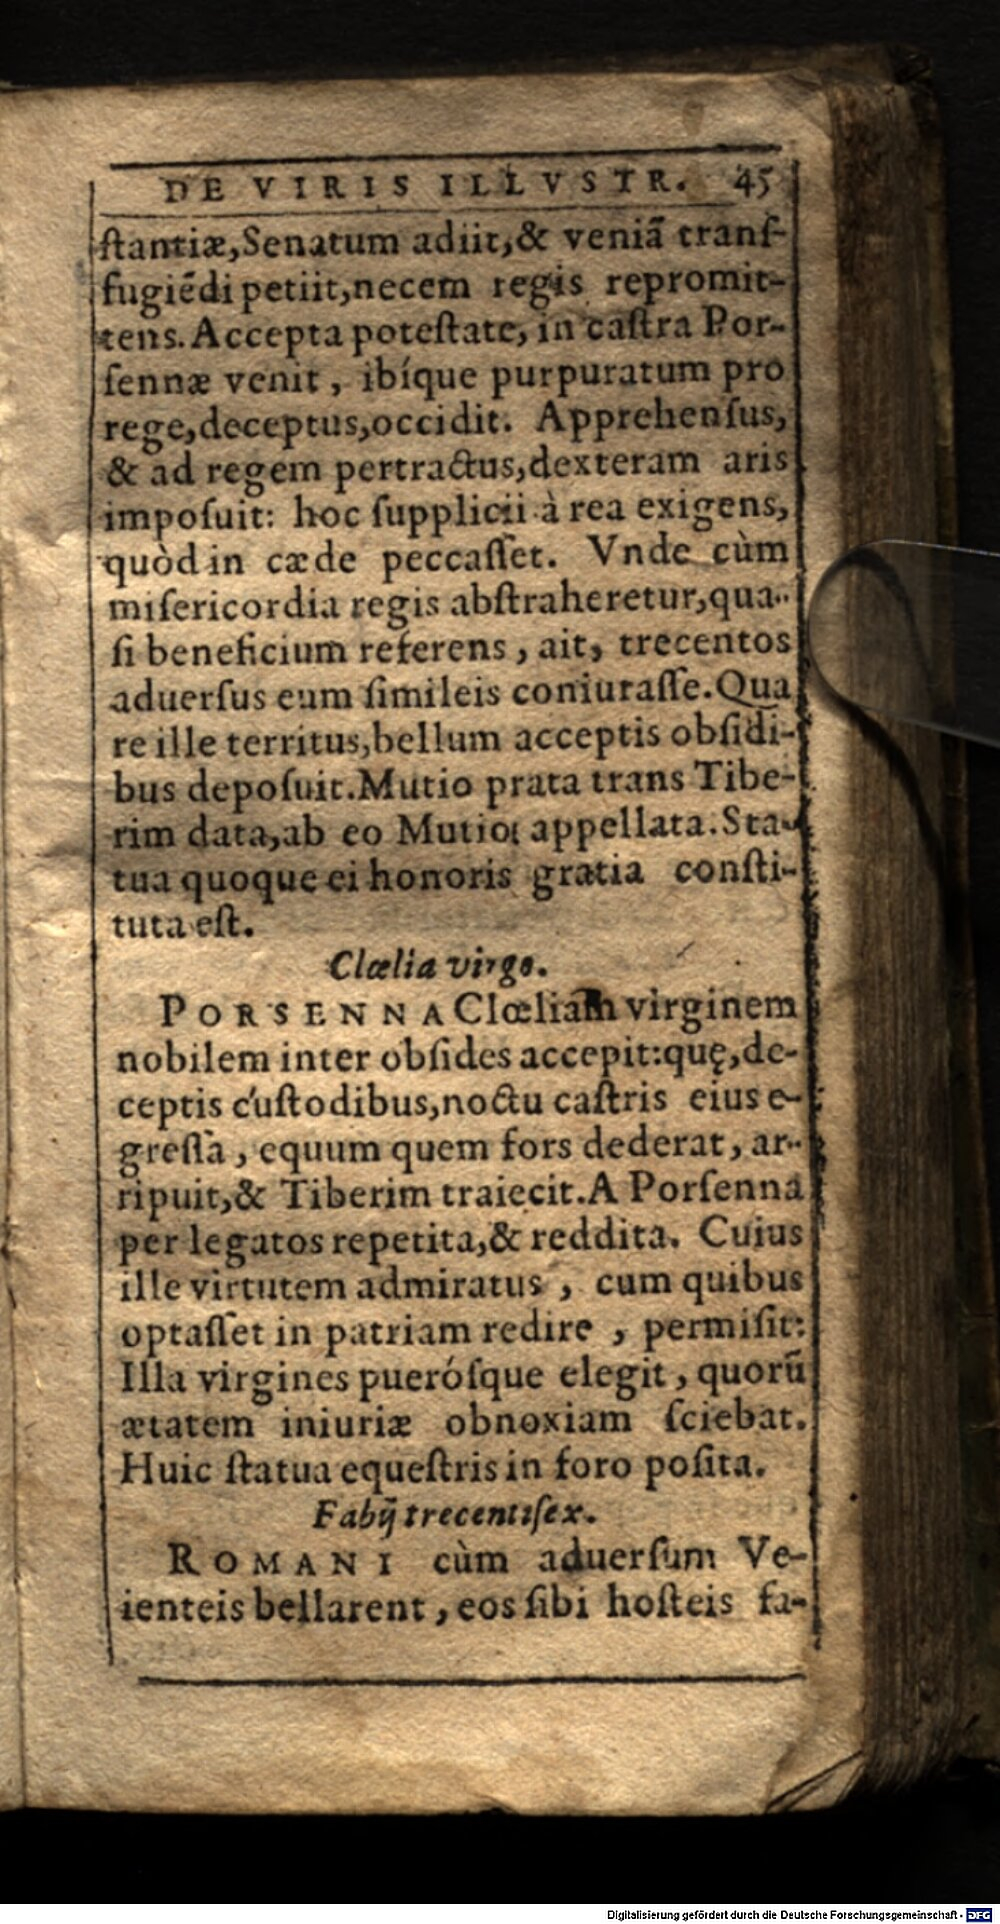 DE VIRIS ILLVSTR. 45
ſtantiæ,Senatum adiit,& veniã tranſ-
fugiẽdi petiit,necem regis repromit-
tens. Accepta poteſtate, in caſtra Por-
ſennæ venit, ibíque purpuratum pro
rege,deceptus,occidit. Apprehenſus,
& ad regem pertractus,dexteram aris
impoſuit: hoc ſupplicii à rea exigens,
quòd in cæde peccaſſet. Vnde cùm
miſericordia regis abſtraheretur,qua-
ſi beneficium referens, ait, trecentos
aduerſus eum ſimileis coniuraſſe. Qua
re ille territus,bellum acceptis obſidi-
bus depoſuit. Mutio prata trans Tibe-
rim data,ab eo appellata. Sta-
tua quoque ei honoris gratia conſti-
tuta eſt.
Clœlia virgo.
PORSENNA Clœliam virginem
nobilem inter obſides accepit:quę,de-
ceptis cuſtodibus,noctu caſtris eius e-
greſſa, equum quem fors dederat, ar-
ripuit,& Tiberim traiecit. A Porſenna
per legatos repetita,& reddita. Cuius
ille virtutem admiratus, cum quibus
optaſſet in patriam redire, permiſit:
Illa virgines pueróſque elegit, quorũ
ætatem iniuriæ obnoxiam ſciebat.
Huic ſtatua equeſtris in foro poſita.
Fabij trecentiſex.
ROMANI cùm aduerſum Ve-
ienteis bellarent, eos ſibi hoſteis fa-
Digitalisierung gefördert durch die Deutsche Forschungsgemeinschaft - DFG